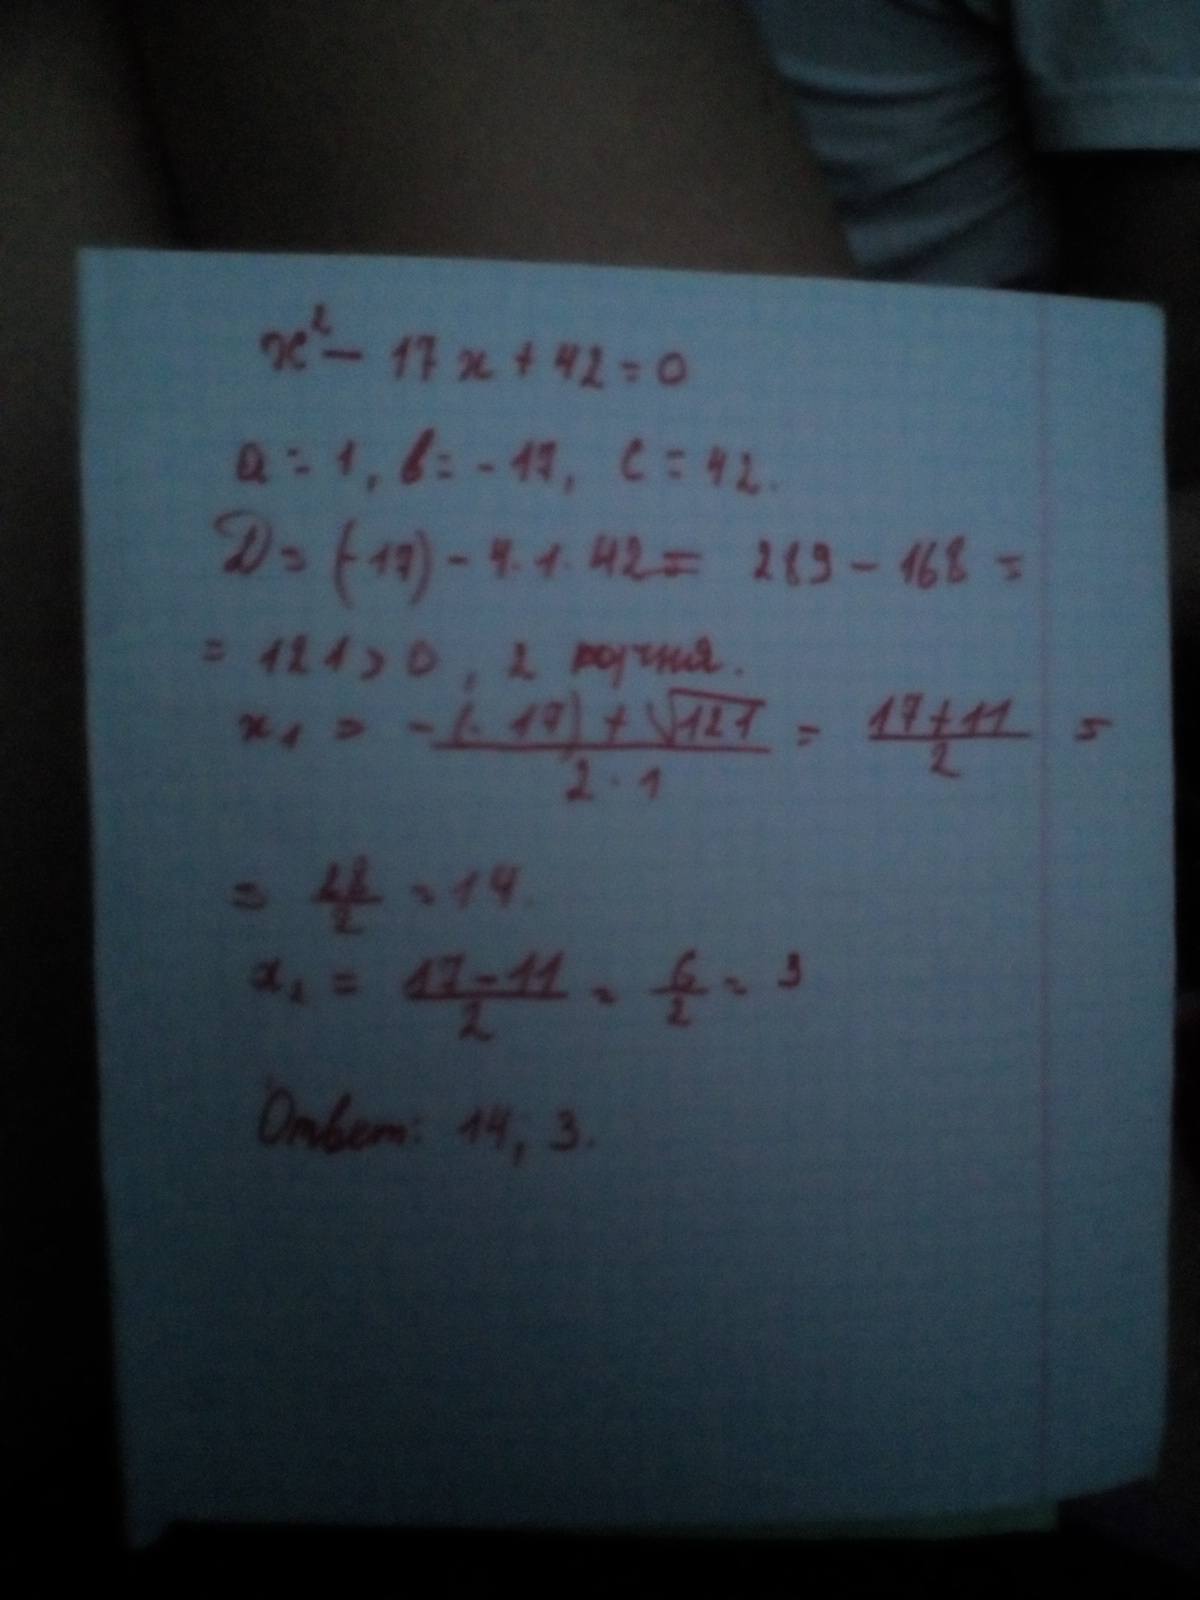 x² - 17x + 42 = 0
a = 1, b = -17, c = 42.
D = (-17) - 4·1·42 = 289 - 168 =
= 121 > 0, 2 корня.
x₁ = -(-17) + √121 / 2·1 = 17+11 / 2 =
= 28/2 = 14.
x₂ = 17-11 / 2 = 6/2 = 3
Ответ: 14; 3.